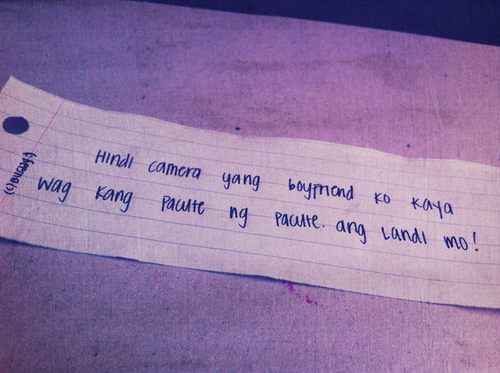 Hindi camera yang boyfriend ko kaya
wag kang pacute ng pacute. ang landi mo!